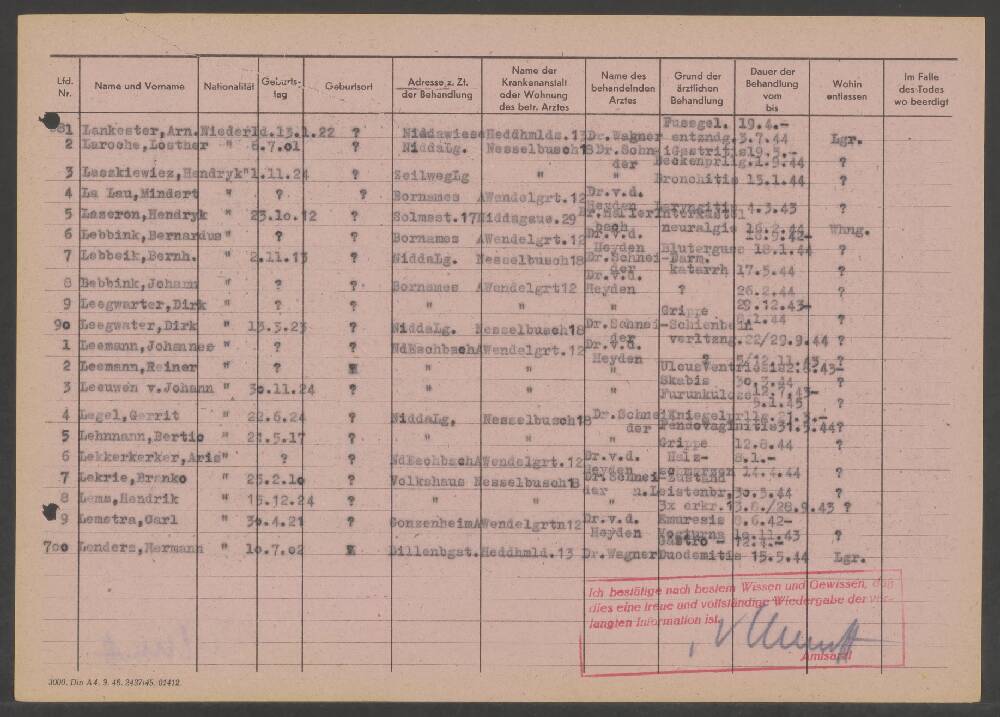 Lfd. Nr. Name und Vorname Nationalität Geburtstag Geburtsort Adresse z. Zt. der Behandlung Name der Krankenanstalt oder Wohnung des betr. Arztes Name des behandelnden Arztes Grund der ärztlichen Behandlung Dauer der Behandlung vom bis Wohin entlassen Im Falle des Todes wo beerdigt
Fussgel. 19.4.-
1 Lankester,Arn. Niederld. 13.1.22 ? Niddawiese Heddhmlds.13 Dr.Wagner entzndg. 3.7.44 Lgr.
2 Laroche,Losther " 6.7.01 ? NiddaLg. Nesselbusch18 Dr.Schneider Gastritis 19.5.-
Beckenprllg. 1.9.44 ?
3 Laszkiewiez,Hendryk " 1.11.24 ? ZeilwegLg " " Bronchitis 15.1.44 ?
4 La Lau,Mindert " ? ? Bornames AWendelgrt.12 Dr.v.d. Heyden Laryngitis 4.3.43 ?
5 Laseron,Hendryk " 23.10.12 ? Solmsst.17 Niddagaue.29 neuralgie 16.2.44 Whng.
6 Lebbink,Bernardus " ? ? Bornames AWendelgrt.12 Dr.v.d. Heyden Bluterguss 18.1.44 ?
7 Lebbeik,Bernh. " 2.11.13 ? NiddaLg. Nesselbusch18 Dr.Schneider Darm-
katarrh 17.5.44 ?
8 Bebbink,Johann " ? ? Bornames AWendelgrt12 Dr.v.d. Heyden ? 26.2.44 ?
9 Leegwarter,Dirk " ? ? " " " Grippe 29.12.43-
8.1.44 ?
90 Leegwater,Dirk " 13.3.23 ? NiddaLg. Nesselbusch18 Dr.Schneider Schienbein
verltzng. 22/29.9.44 ?
1 Leemann,Johannes " ? ? NdEschbach AWendelgrt.12 Dr.v.d. Heyden ? 5/12.11.43 ?
2 Leemann,Reiner " ? " " " Ulcusventriosis 2.8.43-
Skabis 30.3.44 ?
3 Leeuwen v.Johann " 30.11.24 ? " " " Furunkulose 12.7.43-
5.1.45 ?
4 Legel,Gerrit " 22.6.24 ? NiddaLg. Nesselbusch18 Dr.Schneider Kniegelprllg. 21.3.-
Pendovaginitis 31.5.44 ?
5 Lehnnann,Bertie " 21.5.17 ? " " " Grippe 12.8.44 ?
6 Lekkerkerker,Aris " ? ? NdEschbach AWendelgrt.12 Dr.v.d. Heyden Hals- 8.1.-
schmerzen 14.4.44 ?
7 Lekrie,Branko " 25.2.10 ? Volkshaus Nesselbusch18 Dr.Schneider Zustand
n.Leistenbr. 30.5.44 ?
8 Lems,Hendrik " 15.12.24 ? " " " 3x erkr. 13.8./28.9.43 ?
9 Lemstra,Carl " 30.4.21 ? Gonzenheim AWendelgrtn12 Dr.v.d. Heyden Emuresis 8.6.42-
Nogturna 10.11.43 ?
Gastro - 12.4.-
700 Lenders,Hermann " 10.7.02 Dillenbgst. Heddhmld.13 Dr.Wagner Duodemitis 15.5.44 Lgr.
Ich bestätige nach bestem Wissen und Gewissen, daß
dies eine treue und vollständige Wiedergabe der ver-
langten Information ist.
Amtsarzt
3000. Din A4. 9. 46. 2437/45. 01412.